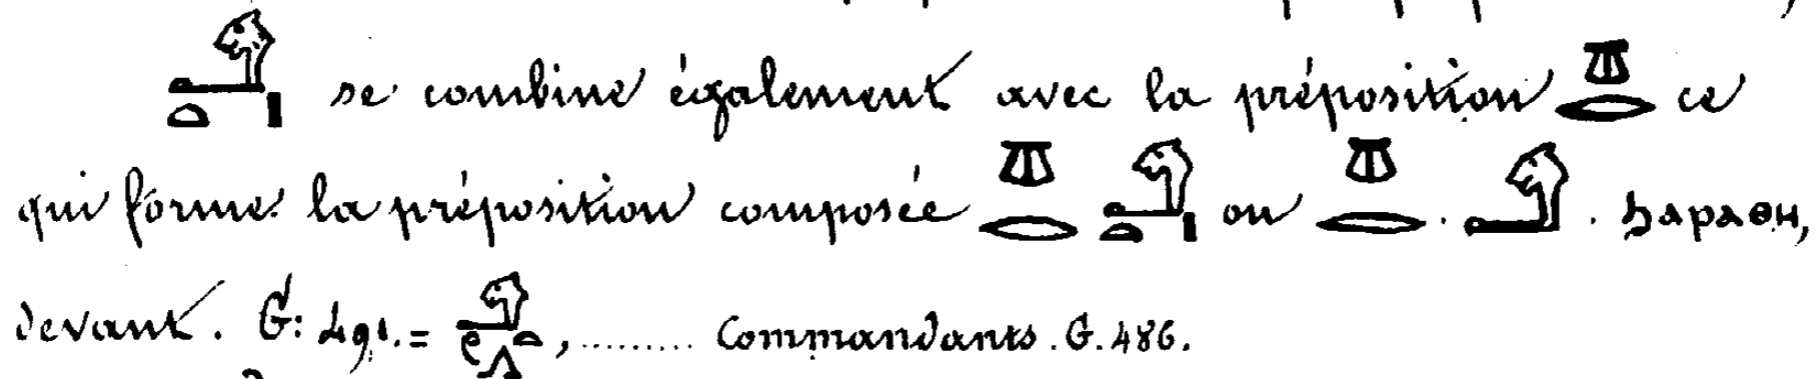 𓄂𓏏𓏤 se combine également avec la préposition 𓌨𓂋 ce
qui forme la préposition composée 𓌨𓂋 𓄂𓏏𓏤 ou 𓌨𓂋. 𓄂. ϧⲁⲣⲁⲑⲏ,
devant. G: 491. = 𓄂𓏲𓏏𓂻, ......... Commandants. G. 486.